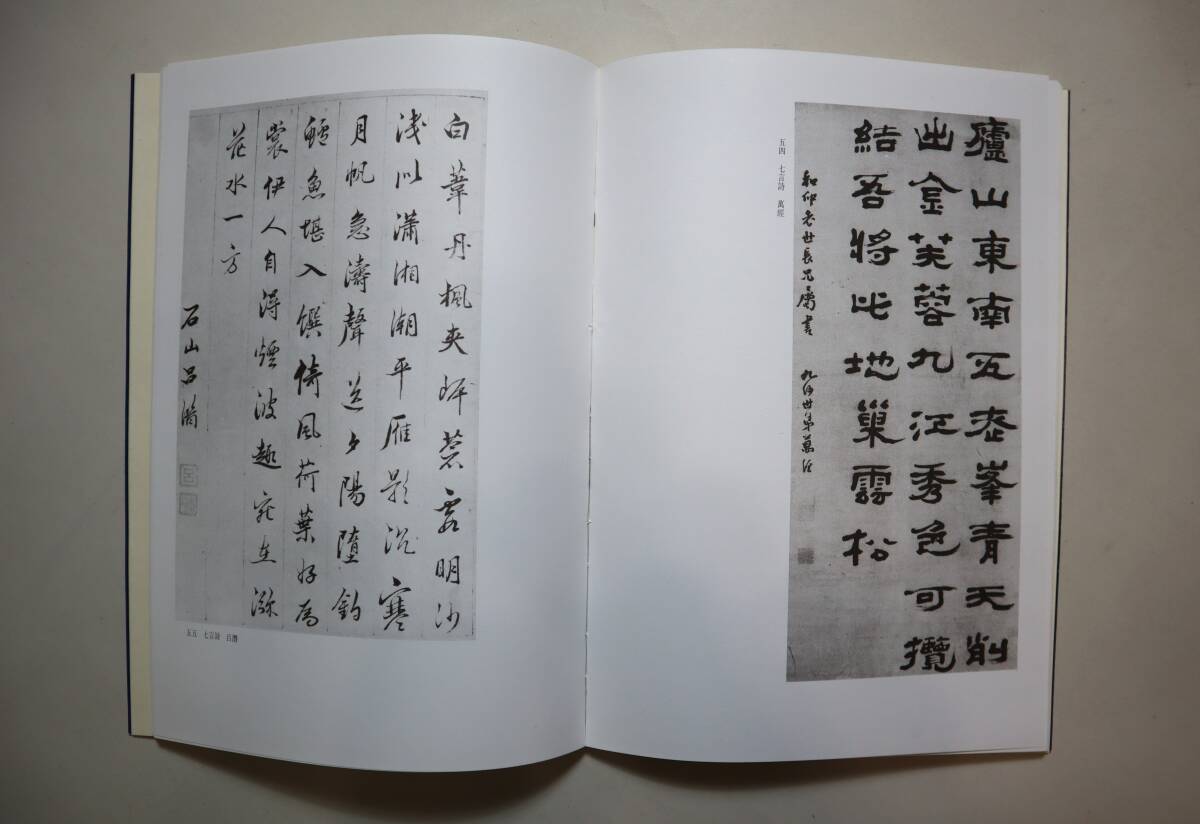 廬山東南五老峯青天削
出金芙蓉九江秀色可攬
結吾將此地巢雲松
和仰老世長兄屬書 九沙世弟萬經
五四 七言詩 萬經
白葦丹楓夾岸蒼霞明沙
淺似瀟湘潮平雁影沉寒
月帆急濤聲送夕陽墮釣
鱸魚堪入饌倚風荷葉好為
裳伊人自得煙波趣宛在
花水一方
石山呂潛
五五 七言詩 呂潛